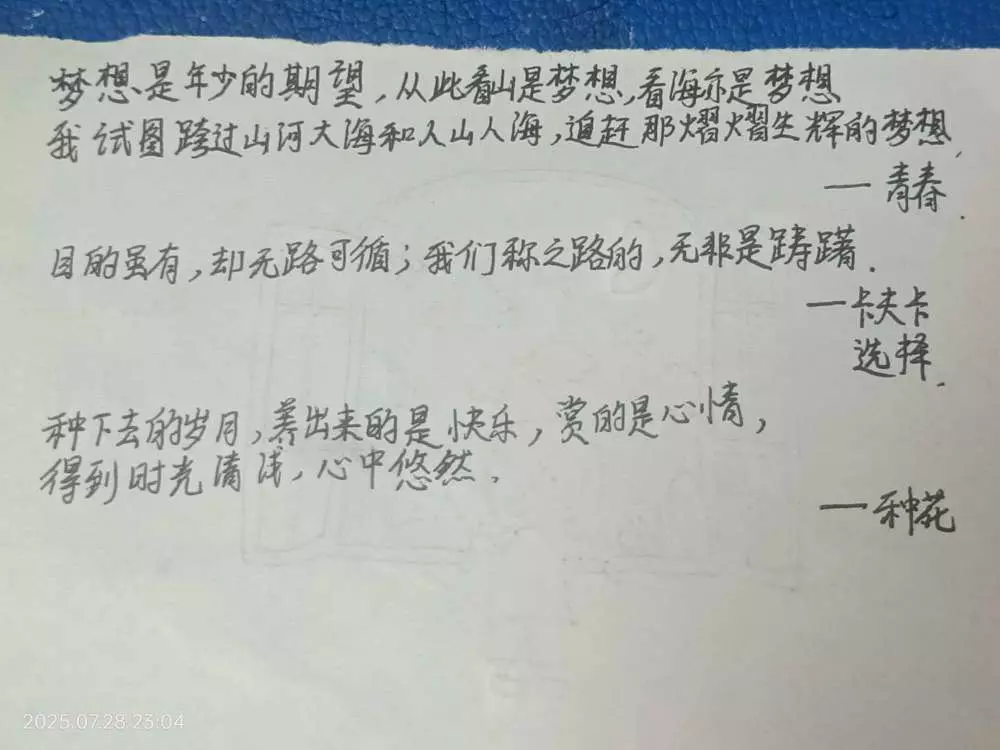 梦想是年少的期望,从此看山是梦想,看海亦是梦想
我试图跨过山河大海和人山人海,追赶那熠熠生辉的梦想.
— 青春.
目的虽有,却无路可循;我们称之路的,无非是踌躇.
— 卡夫卡
选择.
种下去的岁月,养出来的是快乐,赏的是心情,
得到时光清浅,心中悠然.
— 种花
2025.07.28 23:04